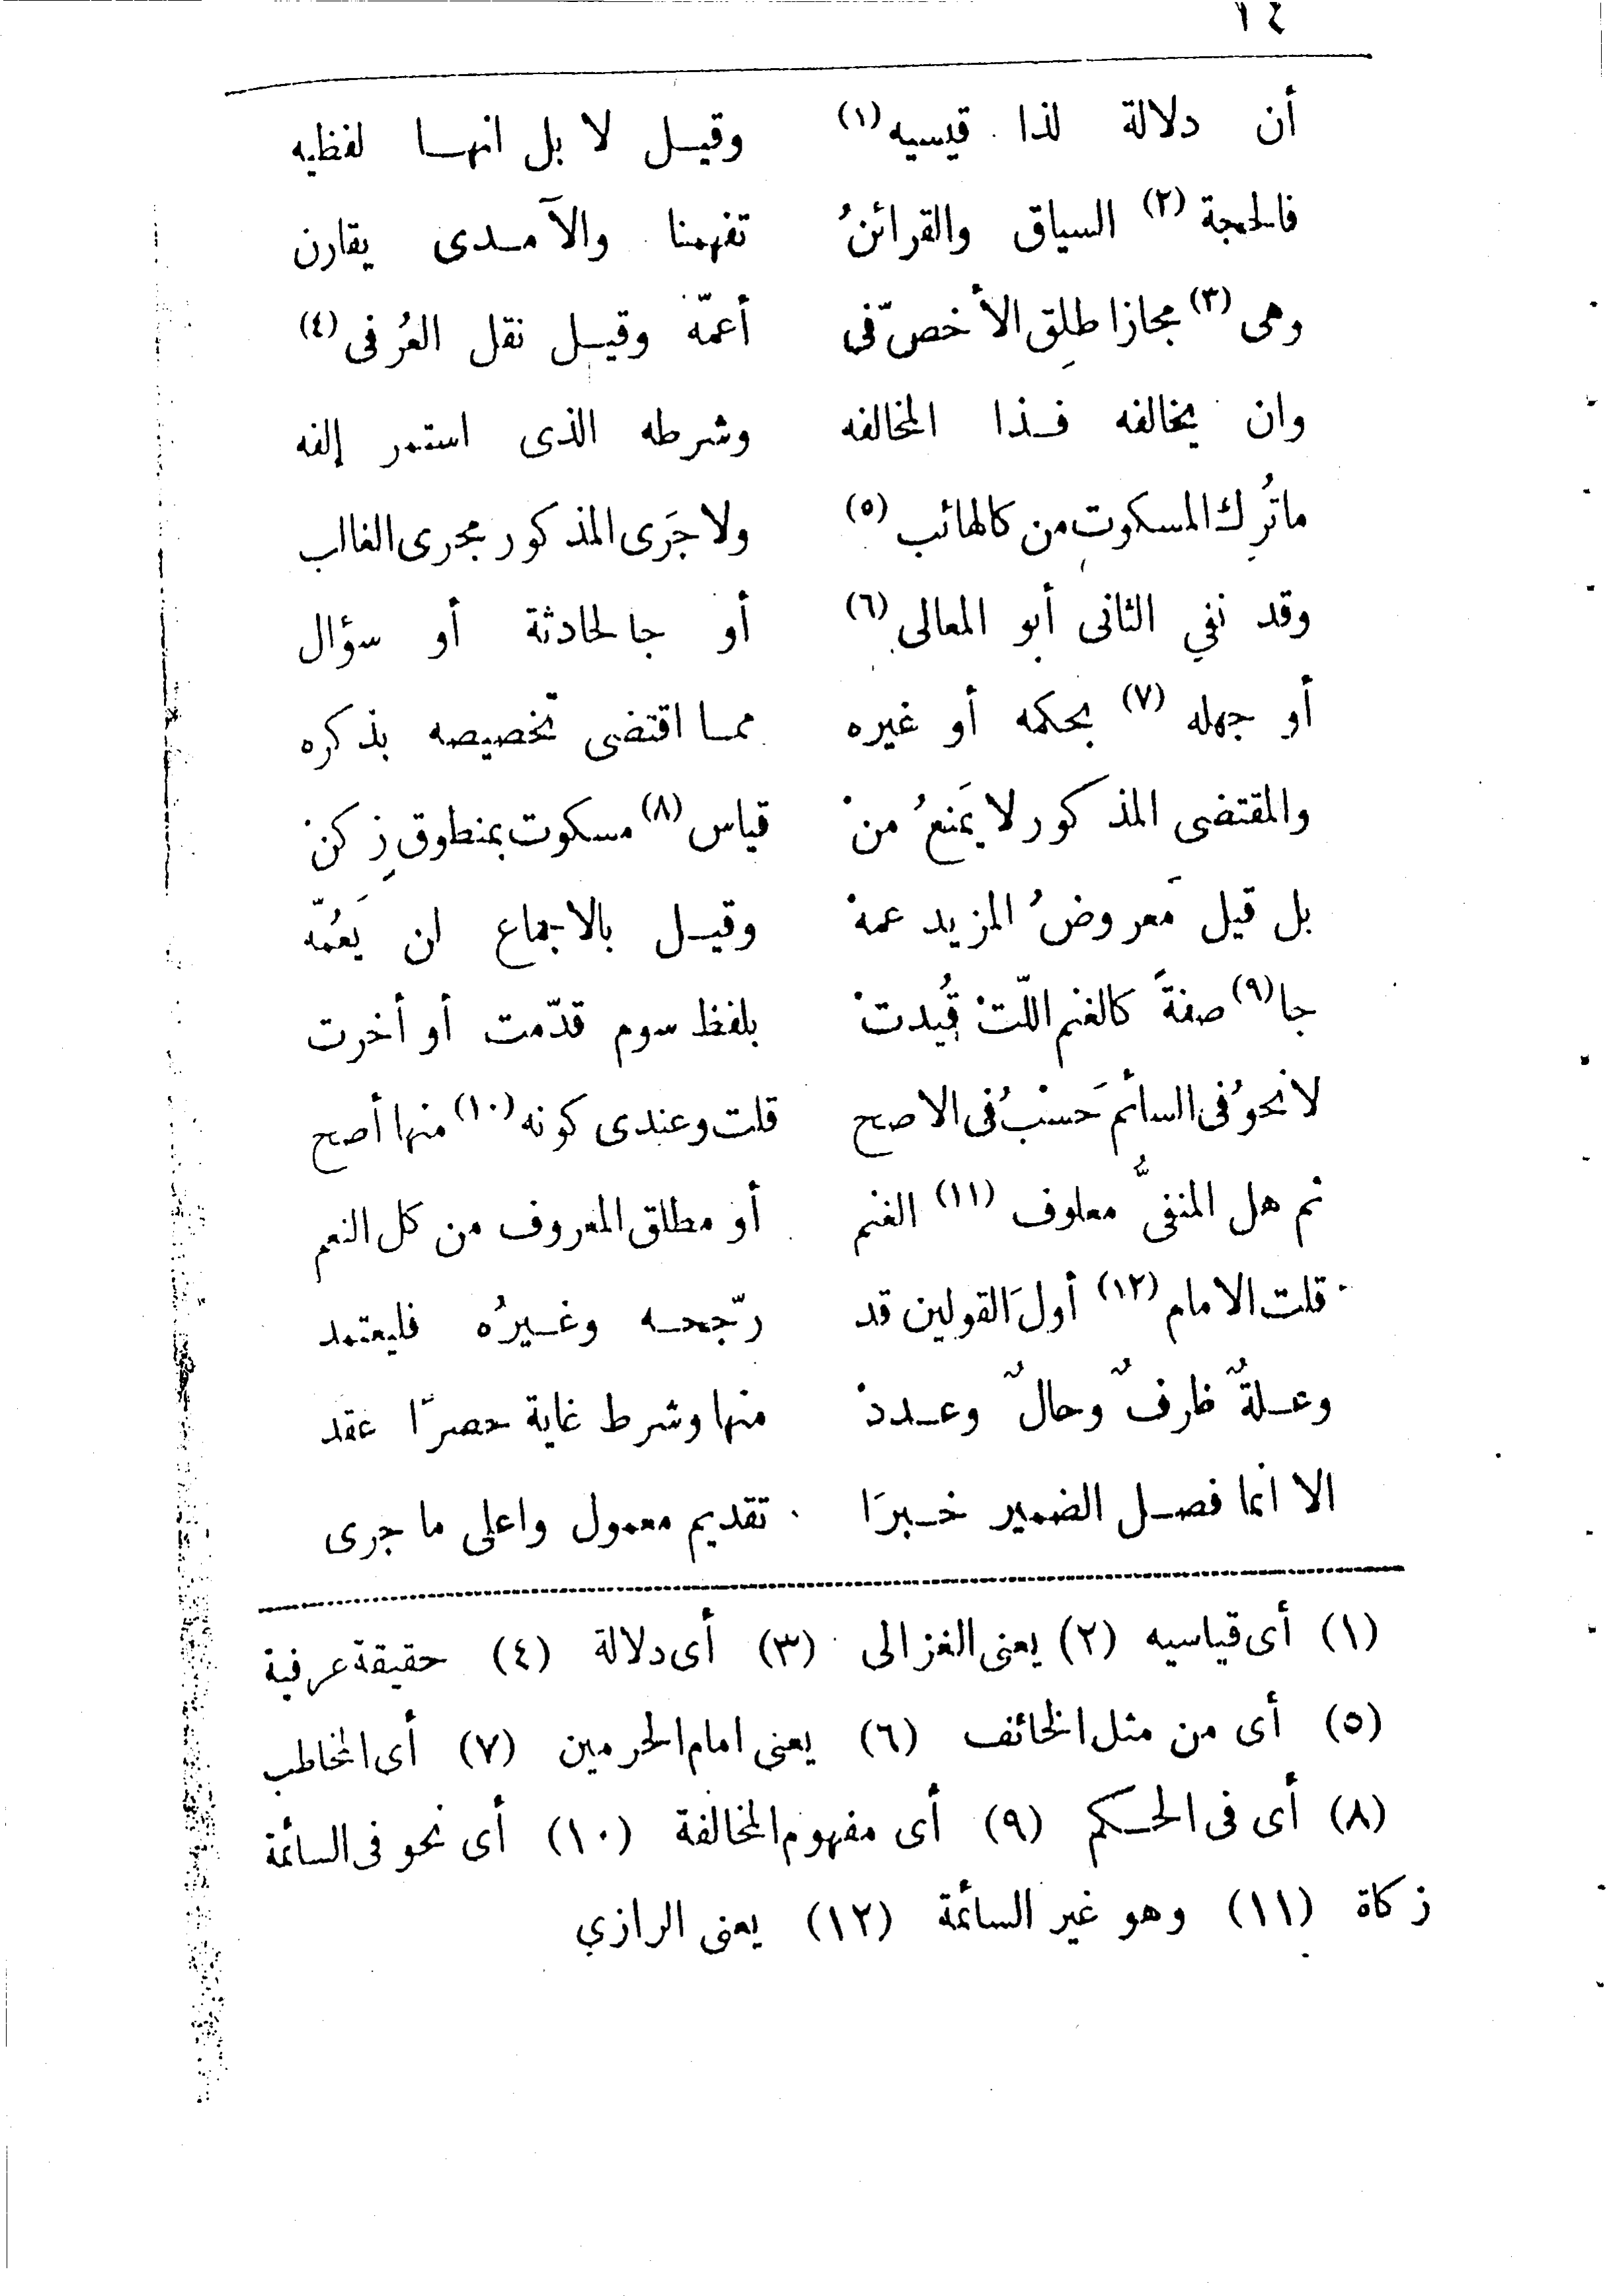 ١٤
أن دلالة لذا قيسيه (١) وقيل لا بل انها لفظيه
فالحجة (٢) السياق والقرائنُ تفهمنا والآمدى يقارن
وهى (٣) مجازا طلِق الأخصّ فى أعمّه وقيل نقل العُرفى (٤)
وان يخالفه فذا المخالفه وشرطه الذى استمر إلفه
ماتُرك المسكوت من كالهائب (٥) ولا جَرَى المذكور مجرى الغالب
وقد نفي الثانى أبو المعالى (٦) أو جا لحادثة أو سؤال
أو جهله (٧) بحكمه أو غيره مما اقتضى تخصيصه بذكره
والمقتضى المذكور لا يَمنعُ منْ قياس (٨) مسكوت بمنطوق زِكنْ
بل قيل مَعروضُ المزيد عمهْ وقيل بالاجماع ان يَعُمّهْ
جا (٩) صفةً كالغنم اللّتْ قُيدتْ بلفظ سوم قدّمت أو أخرت
لا نحوُ فى السائمَ حسْبُ فى الاصح قلت وعندى كونه (١٠) منها أصح
ثم هل المنفىُّ معلوف (١١) الغنم أو مطلق المعروف من كل النعم
قلت الامام (١٢) أولَ القولين قد رّجحه وغيرُه فليعتمد
وعلةٌ ظرفٌ وحالٌ وعددْ منها وشرط غاية حصرًا عقد
الا انما فصل الضمير خبرَا تقديم معمول واعلى ما جرى
(١) أى قياسيه (٢) يعنى الغزالى (٣) أى دلالة (٤) حقيقة عرفية
(٥) أى من مثل الخائف (٦) يعنى امام الحرمين (٧) أى المخاطب
(٨) أى فى الحكم (٩) أى مفهوم المخالفة (١٠) أى نحو فى السائمة
زكاة (١١) وهو غير السائمة (١٢) يعنى الرازي